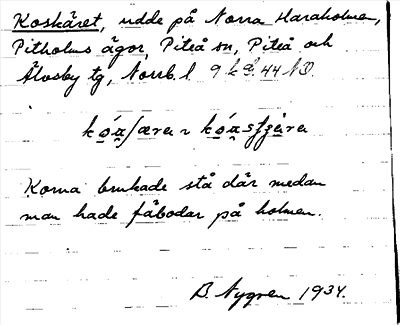 Koskäret, udde på Norra Haraholmen,
Pitholms ägor, Piteå sn, Piteå och
Älvsby tg, Norrb. l. 44 NO.
Korna brukade stå där medan
man hade fäbodar på holmen.
B. Nygren 1934.